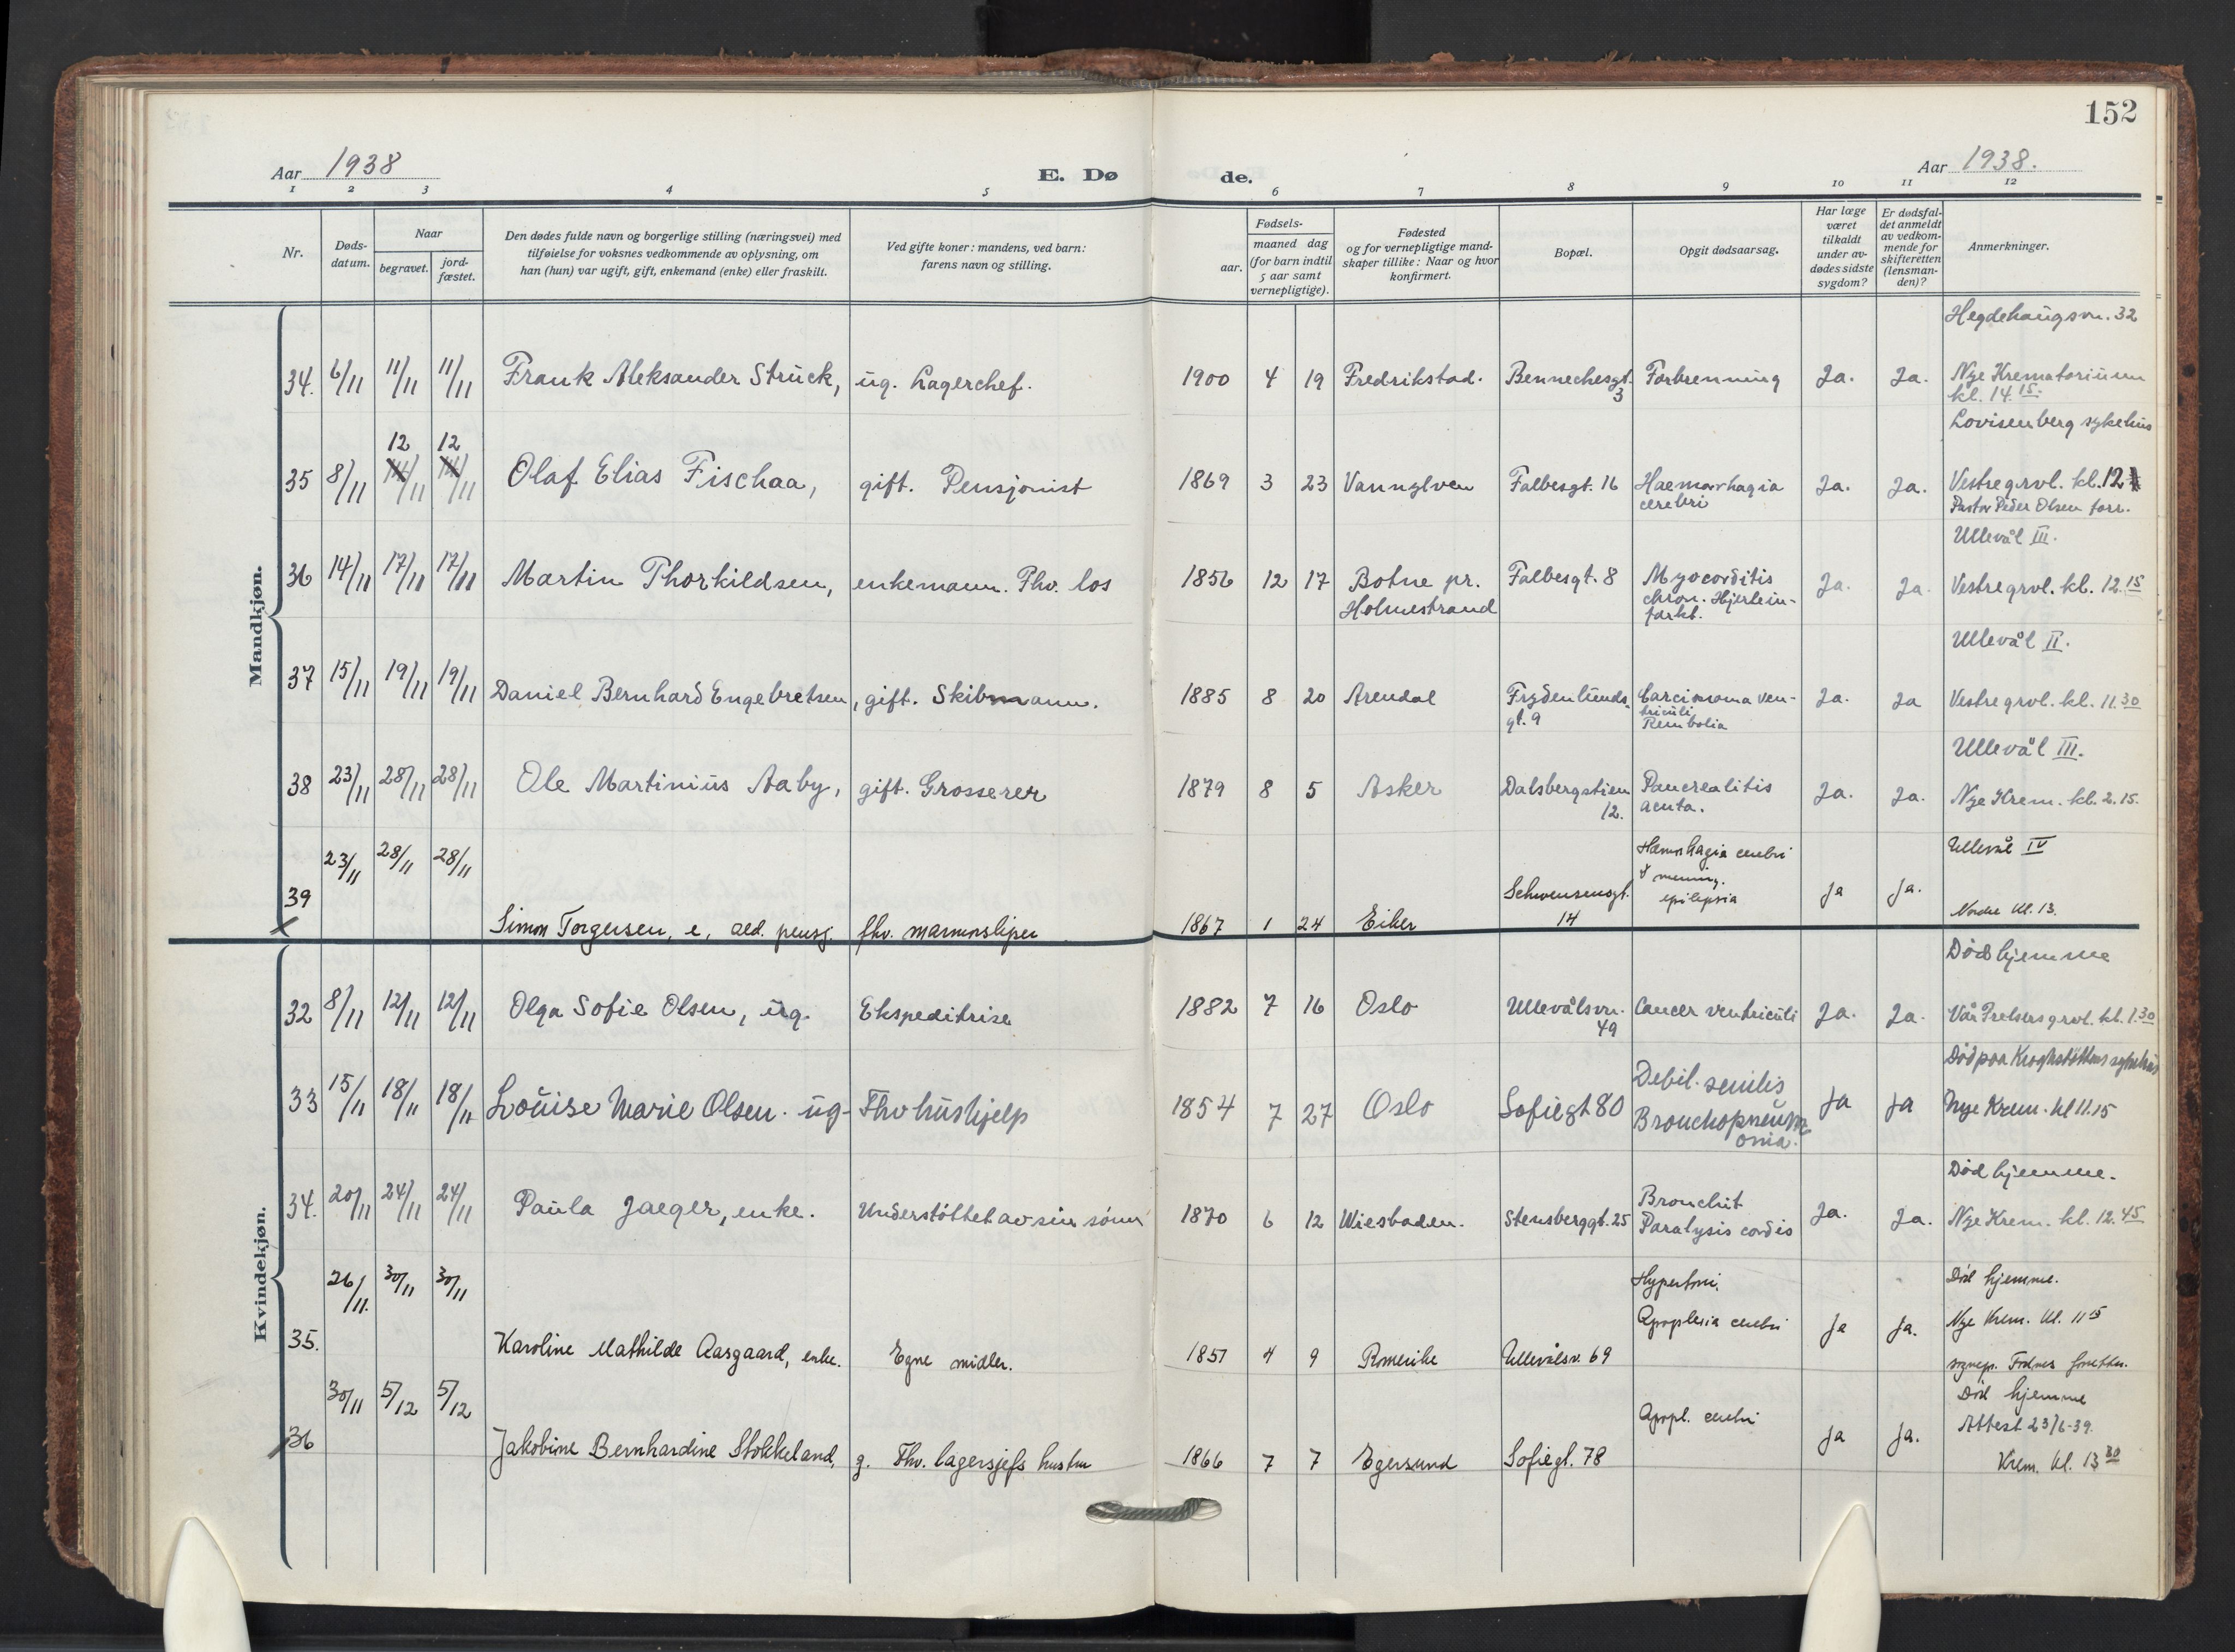 152
Aar 1938 E. Døde. Aar 1938.
1 2 3 4 5 6 7 8 9 10 11 12
Nr.
Dødsdatum.
Naar
begravet.
jordfæstet.
Den dødes fulde navn og borgerlige stilling (næringsvei) med
tilføielse for voksnes vedkommende av oplysning, om
han (hun) var ugift, gift, enkemand (enke) eller fraskilt.
Ved gifte koner: mandens, ved barn:
farens navn og stilling.
Fødsels-
aar.
maaned dag
(for barn indtil
5 aar samt
vernepligtige).
Fødested
og for vernepligtige mand-
skaper tillike: Naar og hvor
konfirmert.
Bopæl.
Opgit dødsaarsag.
Har læge
været
tilkaldt
under av-
dødes sidste
sygdom?
Er dødsfal-
det anmeldt
av vedkom-
mende for
skifteretten
(lensman-
den)?
Anmerkninger.
Mandkjøn.
Hegdehaugsvn. 32
34. 6/11 11/11 11/11 Frank Aleksander Struck, ug. Lagerchef. 1900 4 19 Fredrikstad. Bennechesgt. 3 Forbrenning Ja. Ja. Nye Krematorium
kl. 14.15.
Lovisenberg sykehus
12 12
35 8/11 14/11 14/11 Olaf Elias Fischaa, gift. Pensjonist 1869 3 23 Vannylven Falbesgt. 16 Haemorrhagia Ja. Ja. Vestre grvl. kl. 12
cerebri Pastor Peder Olsen forr.
Ullevål III.
36 14/11 17/11 17/11 Martin Thorkildsen, enkemann. Fhv. los 1856 12 17 Botne pr. Falbesgt. 8 Myocorditis Ja. Ja. Vestre grvl. kl. 12.15
Holmestrand chron. Hjertein-
farkt.
Ullevål II.
37 15/11 19/11 19/11 Daniel Bernhard Engebretsen, gift. Skibmann. 1885 8 20 Arendal Frydenlunds- Carcinoma ven- Ja. Ja Vestre grvl. kl. 11.30
gt. 9 triculi
Ullevål III.
38 23/11 28/11 28/11 Ole Martinius Aaby, gift. Grosserer 1879 8 5 Asker Dalsbergstien Pancrealitis Ja. Ja. Nye Krem. kl. 2.15.
12. acuta.
23/11 28/11 28/11 Hæmorhagia cerebri Ullevål IV
39 Schwensensgt. epilepsia Ja Ja.
Simon Torgersen, e, ald. pensj. fhv. marmorsliper 1867 1 24 Eiker 14 Nordre kl. 13.
Kvindekjøn.
Død hjemme
32 8/11 12/11 12/11 Olga Sofie Olsen, ug. Ekspeditrise 1882 7 16 Oslo Ullevålsvn. Cancer ventriculi Ja. Ja. Vår Frelsers grvl. kl. 1.30
49
Død paa Kroghstøttens sykehus
33 15/11 18/11 18/11 Louise Marie Olsen. ug- Fhv hushjelp 1854 7 27 Oslo Sofiegt 80 Debil. senilis Ja Ja Nye Krem. kl 11.15
Bronchopneum
onia.
Død hjemme.
34. 20/11 24/11 24/11 Paula Jaeger, enke. Understöttet av sin sönn 1870 6 12 Wiesbaden. Stensberggt. 25 Bronchit Ja. Ja. Nye Krem. kl. 12.45
Paralysis cordis
26/11. 30/11 30/11 Hypertoni. Død hjemme.
Apoplexia cerebri Ja Ja. Nye Krem. kl. 11 15
35. Karoline Mathilde Aasgaard, enke. Egne midler. 1851 4 9 Romerike Ullevålsv. 69 sognepr. Fodnes forrettn.
30/11 5/12 5/12 Død hjemme
Apopl. cerebri Attest 23/6-39.
36 Jakobine Bernhardine Stokkeland, g. Fhv. lagersjefs hustru 1866 7 7 Egersund Sofiegt. 78 Ja Ja. Krem. kl. 13 30